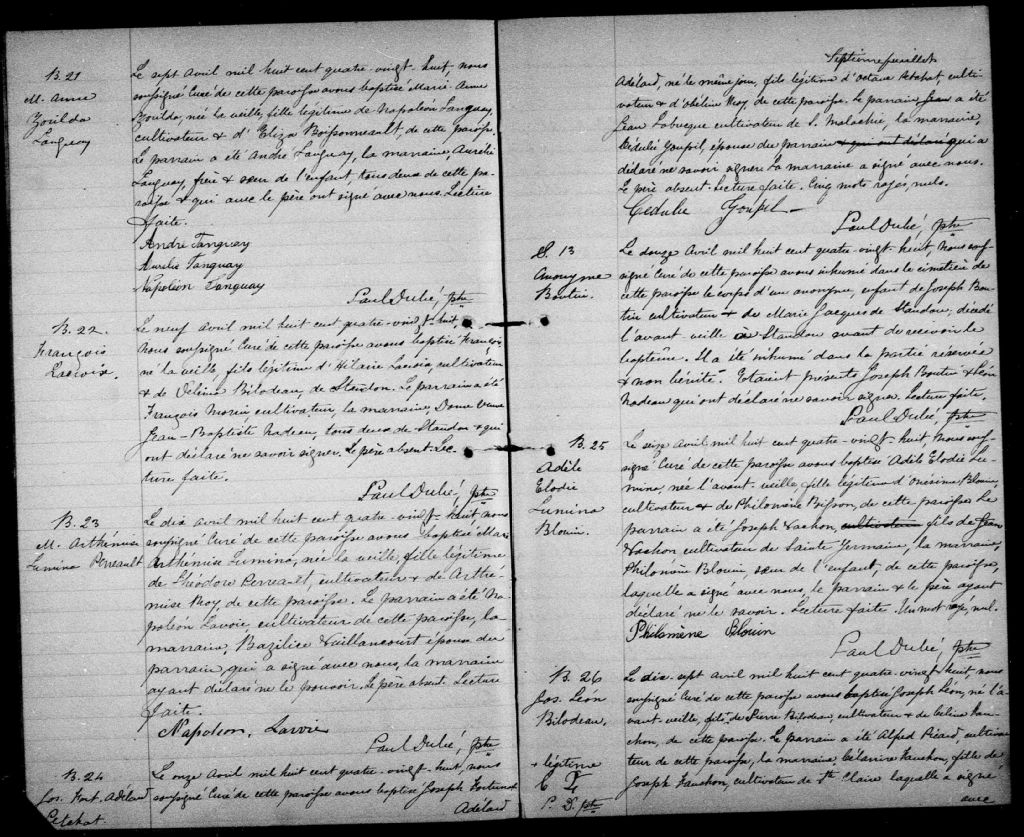 B. 21
M. Anne
Zouilda
Tanguay
Le sept Avril mil huit cent quatre-vingt-huit, nous
soussigné Curé de cette paroisse avons baptisé Marie Anne
Zouilda, née la veille, fille légitime de Napoléon Tanguay,
cultivateur & d'Eliza Boissonneault, de cette paroisse.
Le parrain a été André Tanguay, la marraine, Aurélie
Tanguay, frère & sœur de l'enfant tous deux de cette pa-
roisse & qui avec le père ont signé avec nous. Lecture
faite.
André Tanguay
Aurélie Tanguay
Napoléon Tanguay
Paul Dubé, Ptre
B. 22.
François
Lacroix.
Le neuf Avril mil huit cent quatre-vingt-huit,
Nous soussigné Curé de cette paroisse avons baptisé François,
né la veille, fils légitime d'Hilaire cultivateur
& de Bilodeau, de Standon. Le parrain a été
François Morin cultivateur, la marraine, Dame Veuve
Jean-Baptiste Nadeau, tous deux de Standon & qui
ont déclaré ne savoir signer. Le père absent. Lec-
ture faite.
Paul Dubé, Ptre
B. 23
M. Arthémise
Lumina Perreault
Le dix Avril mil huit cent quatre-vingt-huit, nous
soussigné Curé de cette paroisse avons baptisé Marie
Arthémise Lumina, née la veille, fille légitime
de Théodore Perreault, cultivateur & de Arthé-
mise Roy, de cette paroisse. Le parrain a été Na-
poléon Lavoie cultivateur de cette paroisse, la
marraine, Bazilice Vaillancourt épouse du
parrain, qui a signé avec nous, la marraine
ayant déclaré ne le pouvoir. Le père absent. Lecture
faite.
Napoléon, Lavoie
Paul Dubé, Ptre
B. 24
Jos. Fort. Adélard
Le onze Avril mil huit cent quatre-vingt-huit, nous
soussigné Curé de cette paroisse avons baptisé Joseph Fortunat
Adélard
Septième feuillet
Adélard, né le même jour, fils légitime d'Octave culti-
vateur & d'Obéline Roy, de cette paroisse. Le parrain, Jean a été
Jean Labrecque cultivateur de S. Malachie, la marraine,
Cédulie Goupil, épouse du parrain qui ont déclaré qui a
déclaré ne savoir signer. La marraine a signé avec nous.
Le père absent. Lecture faite. Cinq mots rayés, nuls.
Cedulie Goupil
Paul Dubé, Ptre
S. 13
Anonyme
Boutin.
Le douze Avril mil huit cent quatre-vingt-huit, Nous sous-
signé Curé de cette paroisse avons inhumé dans le cimetière de
cette paroisse le corps d'un anonyme, enfant de Joseph Bou-
tin cultivateur & de Marie Jacques de Standon, décédé
l'avant veille à Standon avant de recevoir le
baptême. Il a été inhumé dans la partie réservée
& non bénite. Etaient présents Joseph Boutin & Léon
Nadeau qui ont déclaré ne savoir signer. Lecture faite.
Paul Dubé, Ptre
B. 25
Adèle
Elodie
Lumina
Blouin.
Le seize Avril mil huit cent quatre-vingt-huit Nous sous-
signé Curé de cette paroisse avons baptisé Adèle Elodie Lu-
mina, née l'avant-veille, fille légitime d'Onésime Blouin,
cultivateur & de Philomène Bisson, de cette paroisse. Le
parrain a été Joseph Vachon, cultivateur fils de Jean
Vachon cultivateur de Sainte Germaine, la marraine,
Philomène Blouin, sœur de l'enfant, de cette paroisse,
laquelle a signé avec nous, le parrain & le père ayant
déclaré ne le savoir. Lecture faite. Un mot rayé, nul.
Philomène Blouin
Paul Dubé, Ptre
B. 26
Jos. Léon
Bilodeau.
+ légitime
P. D. ptre
Le dix-sept Avril mil huit cent quatre-vingt-huit, nous
soussigné Curé de cette paroisse avons baptisé Joseph Léon, né l'a-
vant-veille, fils de Pierre Bilodeau, cultivateur & de Célina Fau-
chon, de cette paroisse. Le parrain a été Alfred Picard cultiva-
teur de cette paroisse, la marraine, Célanire Fauchon, fille de
Joseph Fauchon, cultivateur de Ste Claire laquelle a signé
avec